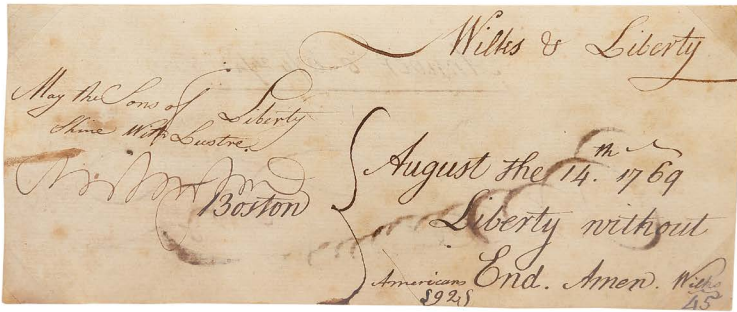 Wilks & Liberty
May the Sons of Liberty
Shine With Lustre.
Boston
August the 14.th 1769
Liberty without
End. Amen. Wilks
45
Americans